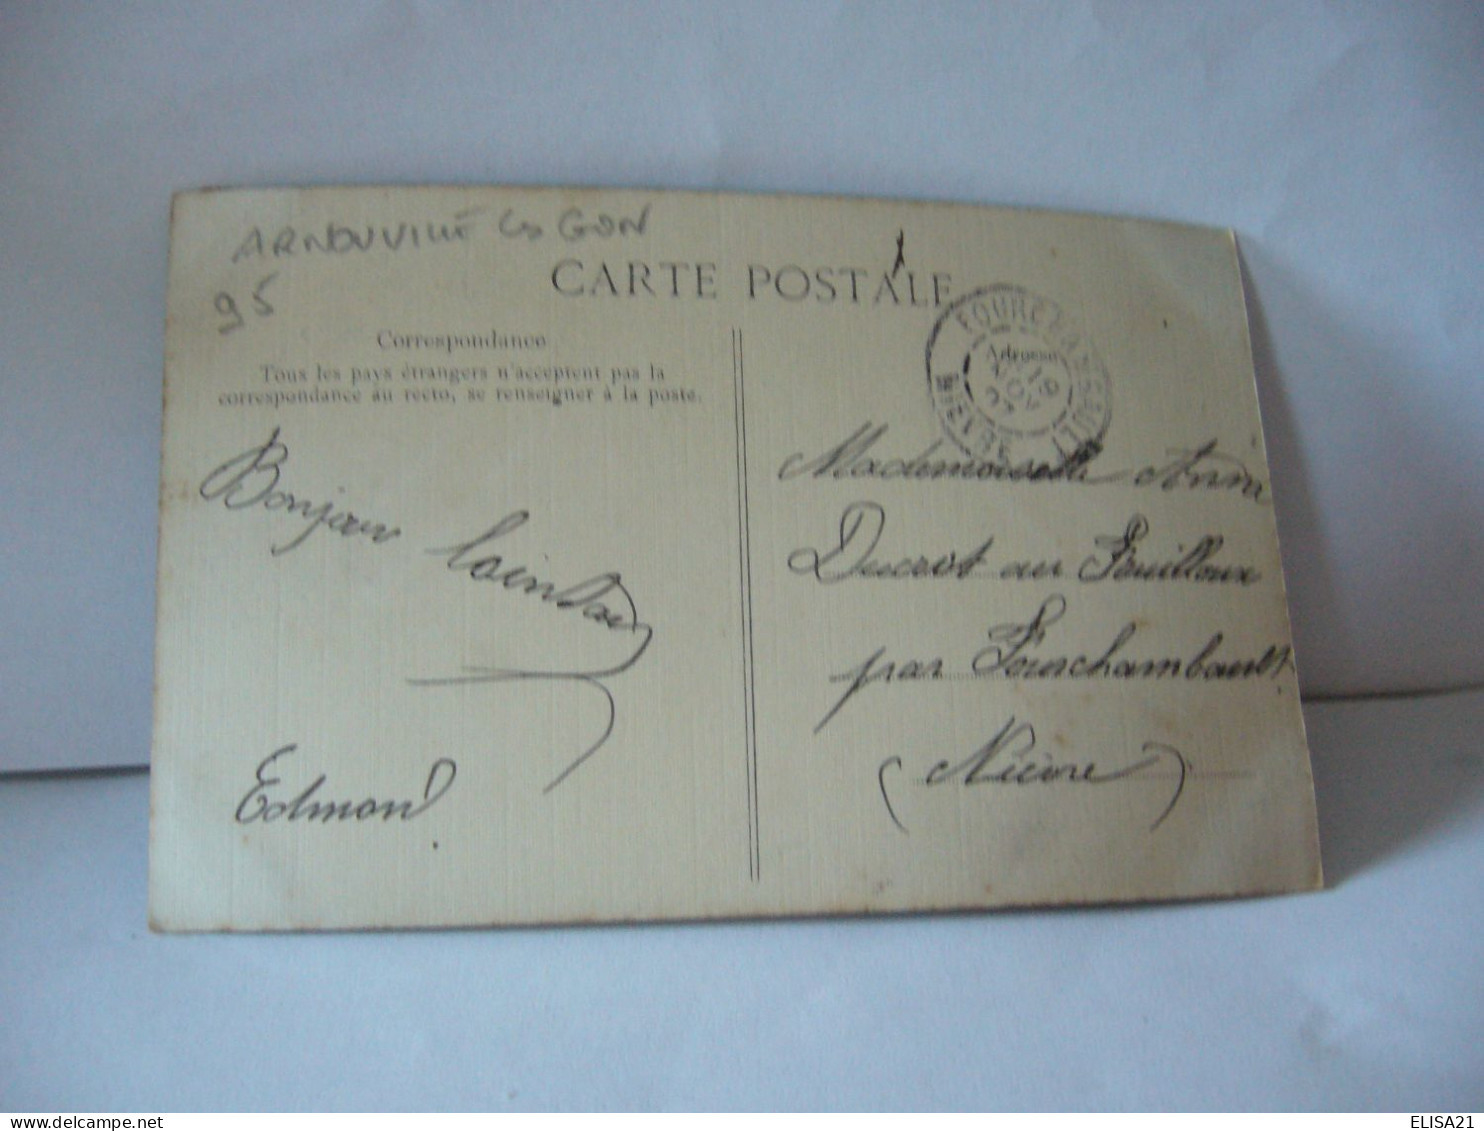 ARNOUVILLE les GON
95
CARTE POSTALE
Correspondance
Tous les pays étrangers n'acceptent pas la
correspondance au recto, se renseigner à la poste.
FOURCHAMBAULT
18
NOV
07
NIEVRE
Bonjour lointain
Edmond
Mademoiselle Anna
Ducrot au Fouilloux
par Fourchambault
(Nièvre)
delcampe.net
ELISA21